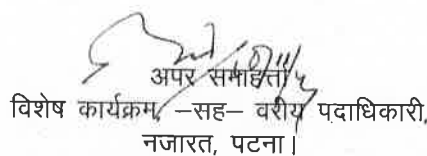 अपर समाहर्त्ता
विशेष कार्यक्रम –सह– वरीय पदाधिकारी,
नजारत, पटना।